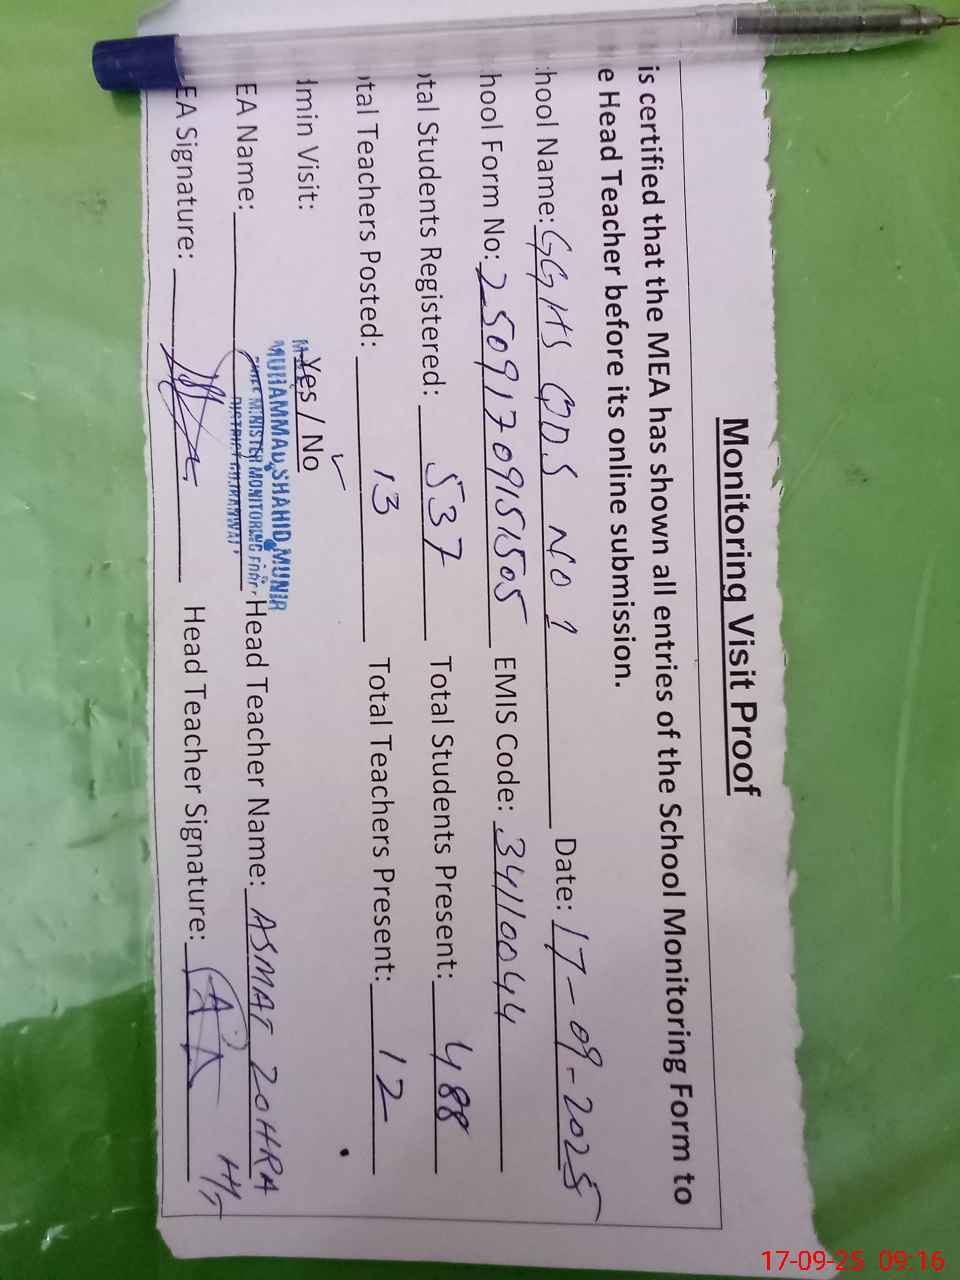 Monitoring Visit Proof
is certified that the MEA has shown all entries of the School Monitoring Form to
e Head Teacher before its online submission.
hool Name: GGHS QDS NO 1 Date: 17-09-2025
hool Form No: 25091709151505 EMIS Code: 34110044
tal Students Registered: 537 Total Students Present: 488
tal Teachers Posted: 13 Total Teachers Present: 12
dmin Visit: Yes / No ✓
MUHAMMAD SHAHID MUNIR
MINISTER MONITORING
DISTRICT
EA Name: Head Teacher Name: ASMAT ZOHRA
EA Signature: Head Teacher Signature:
17-09-25 09:16